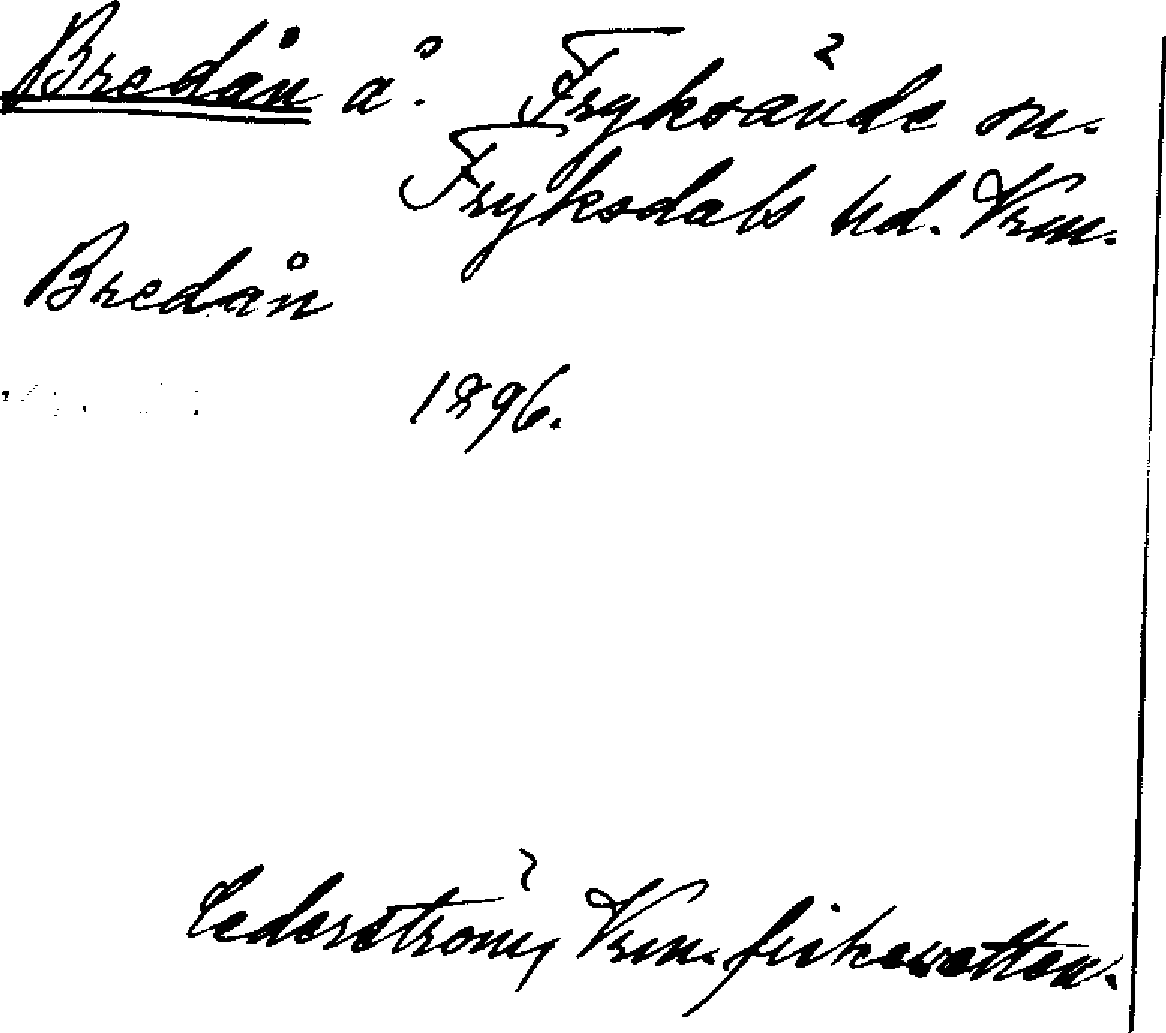 Bredån å. Fryksände sn.
Fryksdals hd. Vrm.
Bredån
1896.
Cederström, Vrm. fiskevatten.